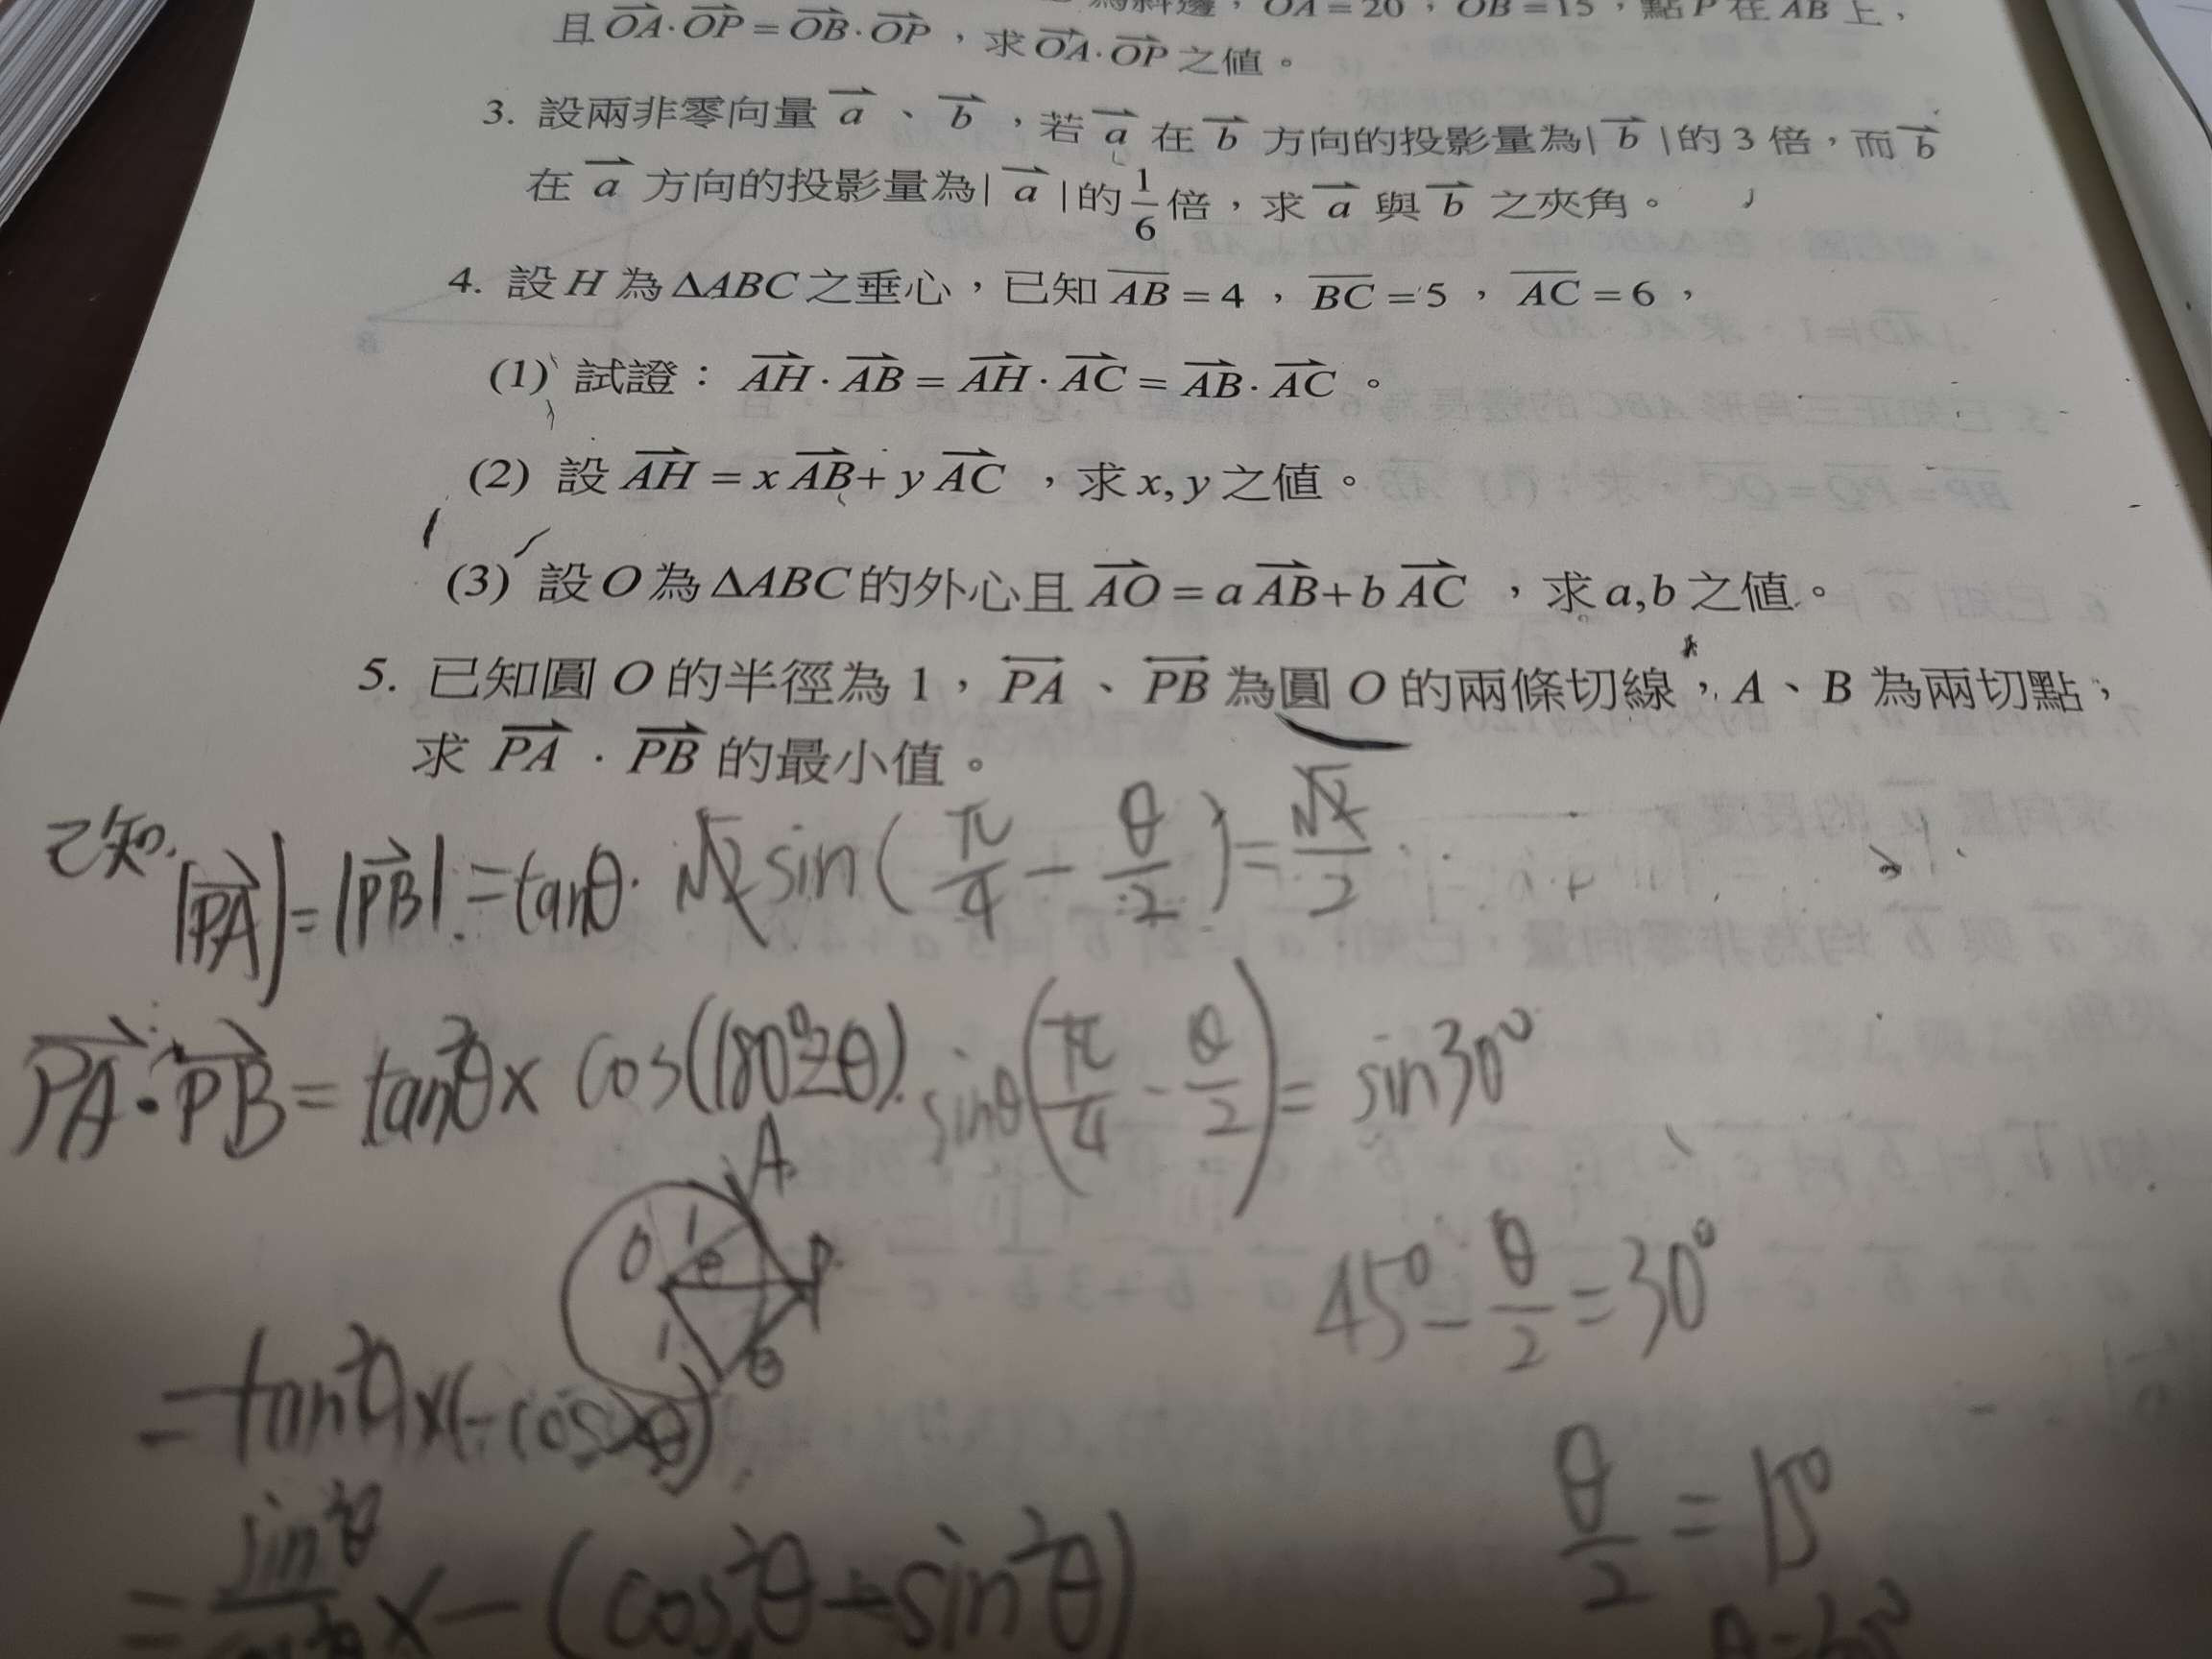 為斜邊，OA=20，OB=15，點P在AB上，
且 OA·OP=OB·OP，求 OA·OP 之值。
3. 設兩非零向量 a、b，若 a 在 b 方向的投影量為| b |的 3 倍，而 b
在 a 方向的投影量為| a |的 1/6 倍，求 a 與 b 之夾角。
4. 設 H 為 ΔABC 之垂心，已知 AB=4，BC=5，AC=6，
(1) 試證：AH·AB=AH·AC=AB·AC。
(2) 設 AH=xAB+yAC，求 x,y 之值。
(3) 設 O 為 ΔABC 的外心且 AO=aAB+bAC，求 a,b 之值。
5. 已知圓 O 的半徑為 1，PA、PB 為圓 O 的兩條切線，A、B 為兩切點，
求 PA·PB 的最小值。
已知. |PA|=|PB|=tanθ. √2 sin(π/4-θ/2)=√2/2
PA·PB=tan²θ× cos(180°-2θ) sinθ(π/4-θ/2)=sin30°
A
O 1 θ P
1 B
45°-θ/2=30°
=tan²θ×(-cos2θ)
θ/2=15°
=sin²θ/cos²θ×-(cos²θ-sin²θ)